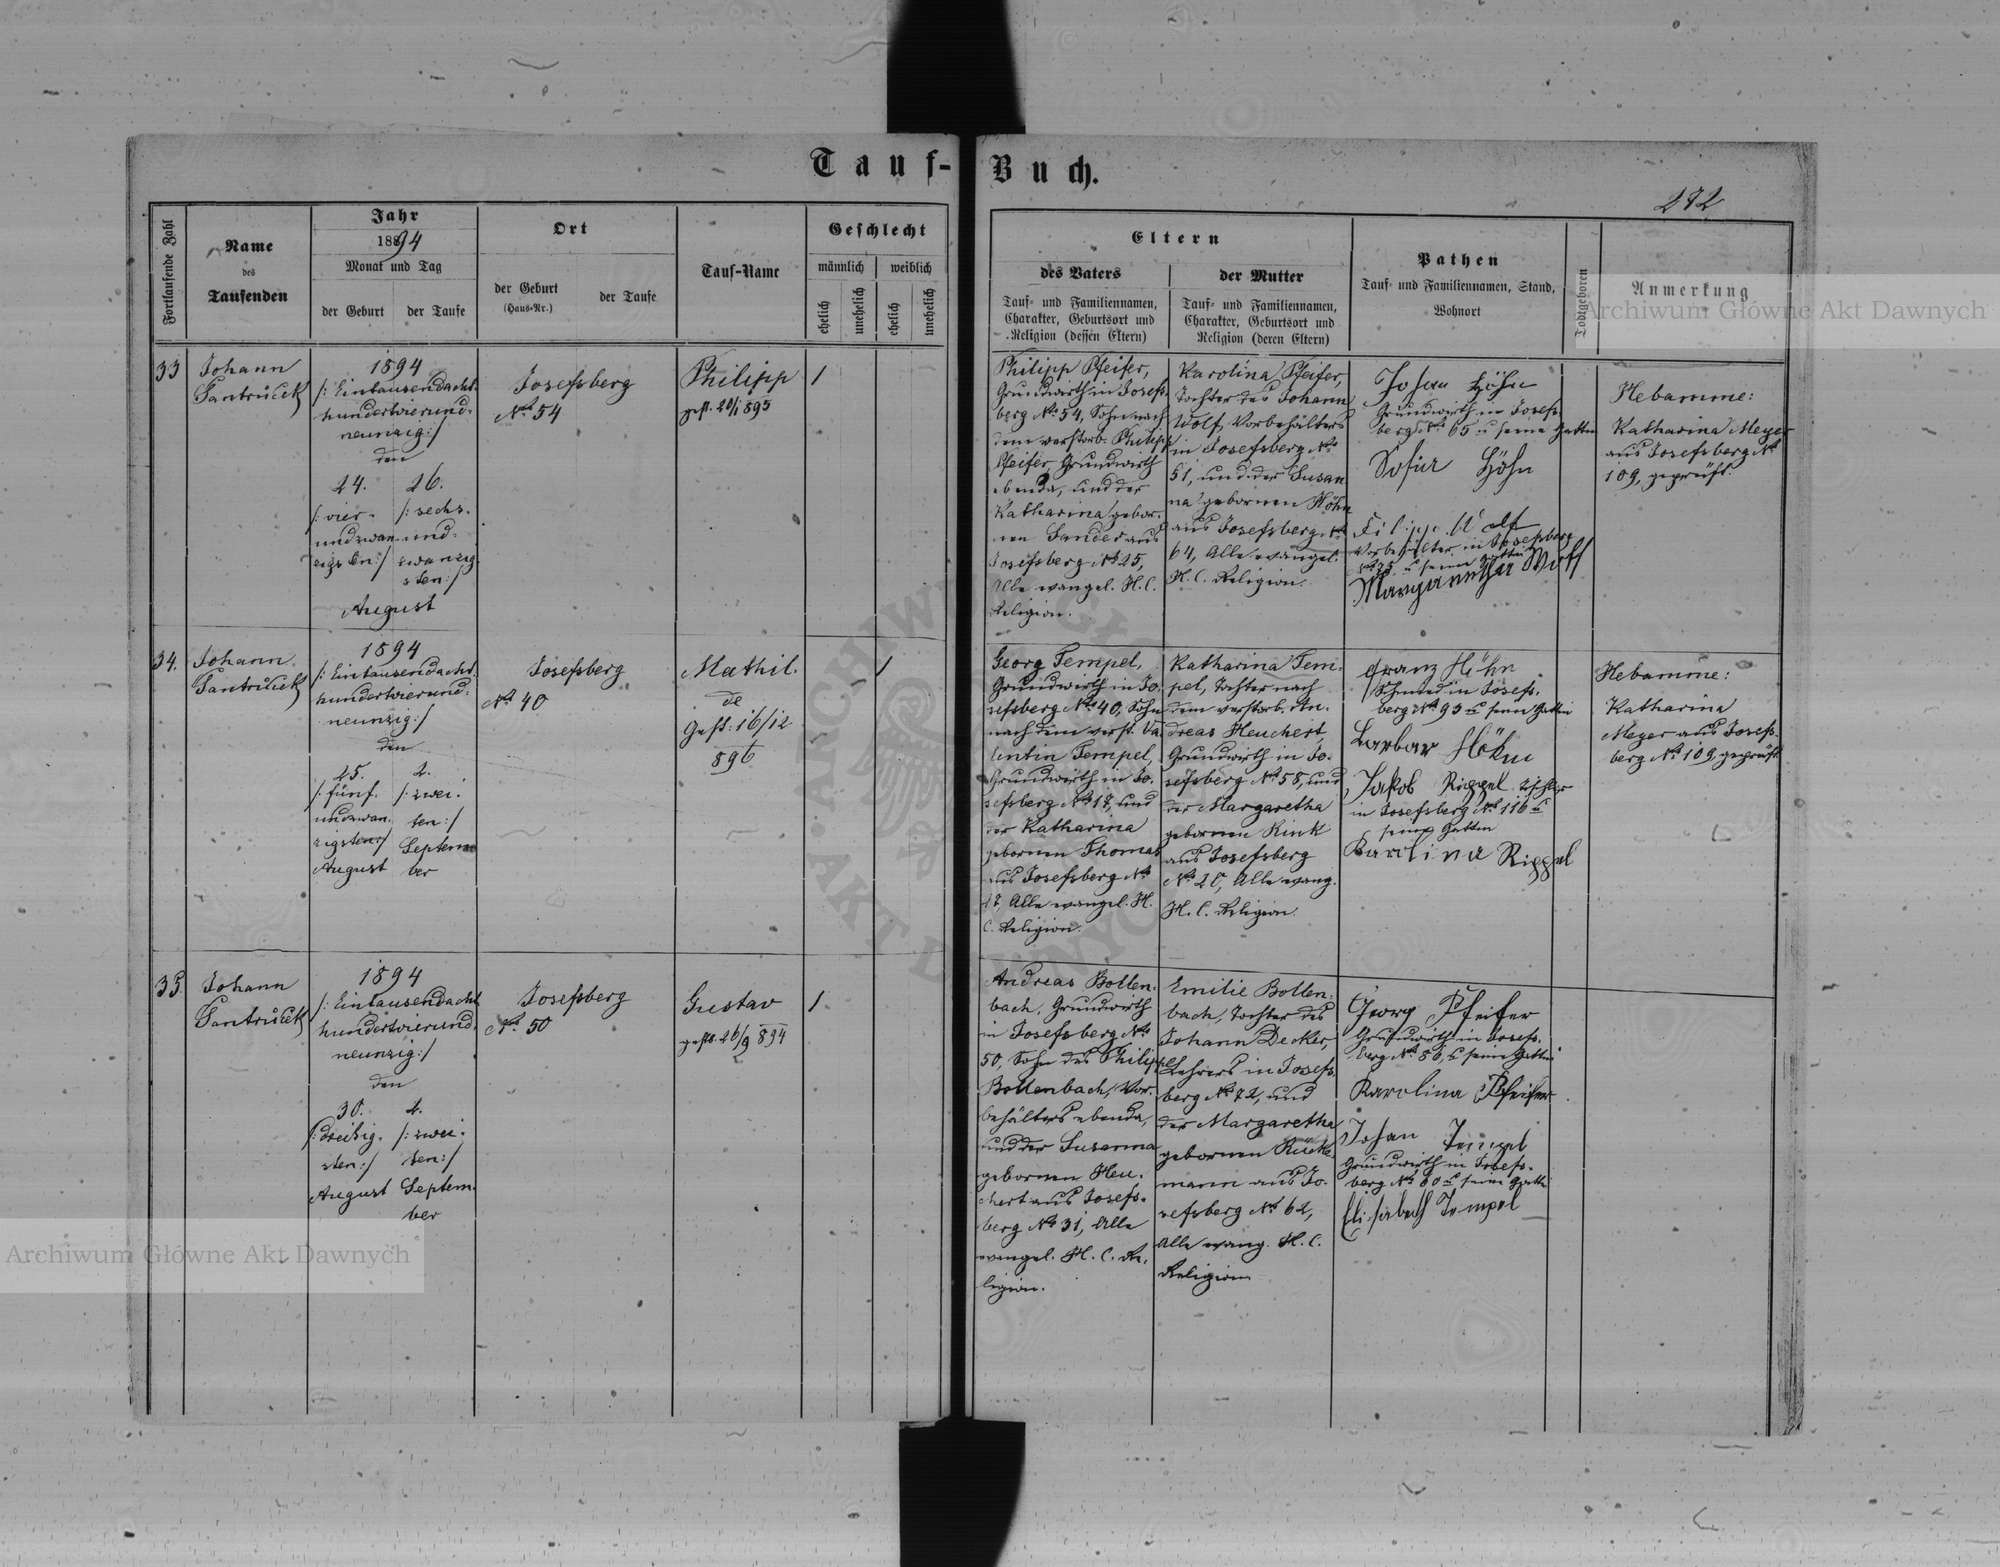 Tauf-Buch.
272
Fortlaufende Zahl
Name
des
Taufenden
Jahr
1894
Monat und Tag
der Geburt
der Taufe
Ort
der Geburt
(Haus-Nr.)
der Taufe
Tauf-Name
Geschlecht
männlich
weiblich
ehelich
unehelich
ehelich
unehelich
Eltern
des Vaters
Tauf- und Familiennamen,
Charakter, Geburtsort und
Religion (dessen Eltern)
der Mutter
Tauf- und Familiennamen,
Charakter, Geburtsort und
Religion (deren Eltern)
Pathen
Tauf- und Familiennamen, Stand,
Wohnort
Todtgeboren
Anmerkung
33
Johann
Santruček
1894
/: Eintausendacht-
hundertvierund-
neunzig :/
den
24.
/: vier-
undzwan-
zigsten :/
26.
/: sechs-
und-
zwanzig-
sten :/
August
Josefsberg
No 54
Philipp
gest. 20/1 895
1
Philipp Pfeifer,
Grundwirth in Josefs-
berg No 54, Sohn nach
dem verstorb. Philipp
Pfeifer, Grundwirth
ebenda, und der
Katharina gebor-
nen Sander aus
Josefsberg No 25,
Alle evangel. H. C.
Religion.
Karolina Pfeifer,
Tochter des Johann
Wolf, Vorbehälters
in Josefsberg No
51, und der Susan
na gebornen Höhn
aus Josefsberg No
64, Alle evangel.
H. C. Religion.
Johan Höhn
Grundwirth in Josefs
berg No 65 u seine Gattin
Sofia Höhn
Filipp Wolf
Vorbehälter in Josefsberg
No 25 u seine Gattin
Margaretha Wolf
Hebamme:
Katharina Meyer
aus Josefsberg No
109, geprüft.
34.
Johann
Santruček
1894
/: Eintausendacht-
hundertvierund-
neunzig :/
den
25.
/: fünf-
undzwan-
zigsten :/
August
2.
/: zwei-
ten :/
Septem
ber
Josefsberg
No 40
Mathil-
de
Gest: 16/12
896
1
Georg Tempel,
Grundwirth in Jo-
sefsberg No 40, Sohn
nach dem verst. Va
lentin Tempel,
Grundwirth in Jo-
sefsberg No 17, und
der Katharina
gebornen Thomas
aus Josefsberg No
17, Alle evangel. H.
C. Religion.
Katharina Tem-
pel, Tochter nach
dem verstorb. An-
dreas Heuchert,
Grundwirth in Jo-
sefsberg No 58, und
der Margaretha
gebornen Kink
aus Josefsberg
No 20, Alle evang.
H. C. Religion.
Franz Höhn
Schmied in Josefs-
berg No 93 u seine Gattin
Barbar Höhn
Jakob Rippel Tischler
in Josefsberg No 116 u
seine Gattin
Karolina Rippel
Hebamme:
Katharina
Meyer aus Josefs-
berg No 109, geprüft
35.
Johann
Santruček
1894
/: Eintausendacht
hundertvierund-
neunzig :/
den
30.
/: dreißig-
sten :/
August
2.
/: zwei-
ten :/
Septem-
ber
Josefsberg
No 50
Gustav
gest. 26/9 894
1
Andreas Bollen-
bach, Grundwirth
in Josefsberg No
50, Sohn des Philipp
Bollenbach, Vor-
behälters ebenda,
und der Susanna
gebornen Heu-
chert aus Josefs-
berg No 31, Alle
evangel. H. C. Re-
ligion.
Emilie Bollen-
bach, Tochter des
Johann Decker,
Lehrers in Josefs-
berg No 72, und
der Margaretha
gebornen Rück-
mann aus Jo-
sefsberg No 62,
Alle evang. H. C.
Religion
Georg Pfeifer
Grundwirth in Josefs-
berg No 56, u seine Gattin
Karolina Pfeifer
Johan Tempel
Grundwirth in Josefs-
berg No 60 u seine Gattin
Elisabeth Tempel
Archiwum Główne Akt Dawnych
Archiwum Główne Akt Dawnych